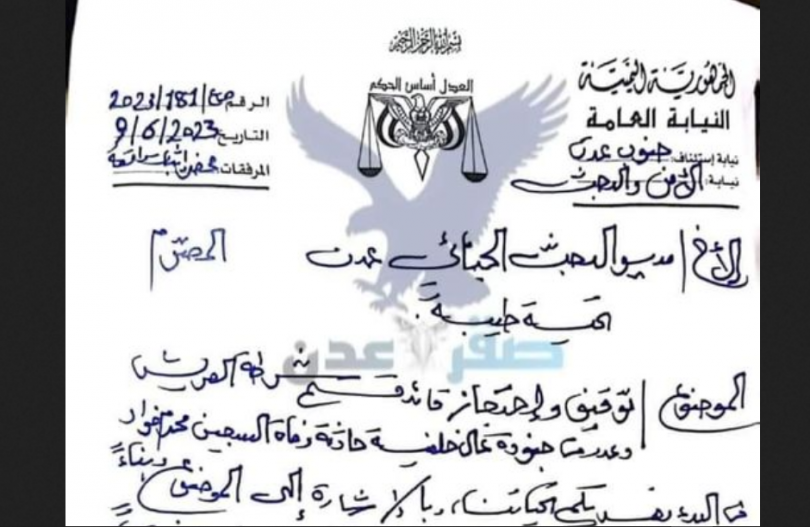 بسم الله الرحمن الرحيم
الجمهورية اليمنية
النيابة العامة
نيابة إستئناف: جنوب عدن
نيابة: الأمن والبحث
العدل أساس الحكم
الرقم: ص/181/2023
التاريخ: 9/6/2023
المرفقات: محضر إثبات
الأخ/ مدير البحث الجنائي عدن المحترم
تحية طيبة
صقر عدن
الموضوع/ توقيف وإحتجاز قائد قسم شرطة العريش
وعدد من جنوده على خلفية حادثة وفاة السجين محمد
في البدء نهديكم تحياتنا، وبالإشارة إلى الموضوع وبناءً